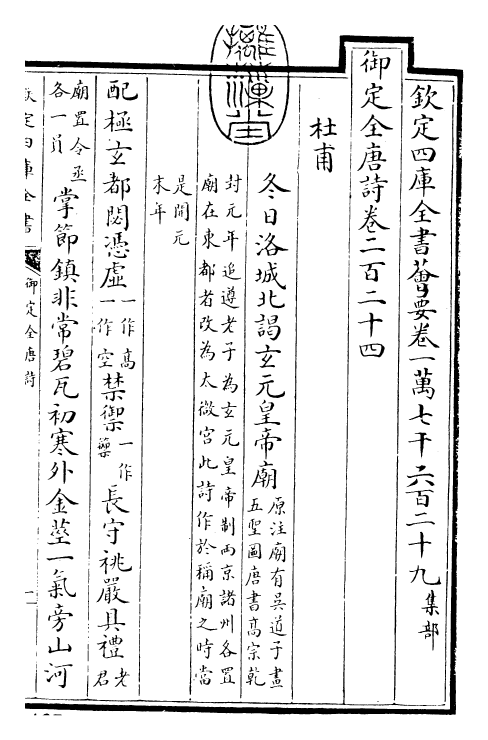 欽定四庫全書薈要卷一萬七千六百二十九集部
御定全唐詩卷二百二十四
杜甫
冬日洛城北謁玄元皇帝廟原注廟有吳道子畫
五聖圖唐書髙宗乾
封元年追遵老子為玄元皇帝制兩京諸州各置
廟在東都者改為太微宫此詩作於稱廟之時當
是開元
末年
配極玄都閟憑虚一作高
一作空禁禦一作
籞長守祧嚴具禮老
君
廟置令丞
各一員掌節鎮非常碧瓦初寒外金莖一氣旁山河
欽定四庫全書
御定全唐詩
一